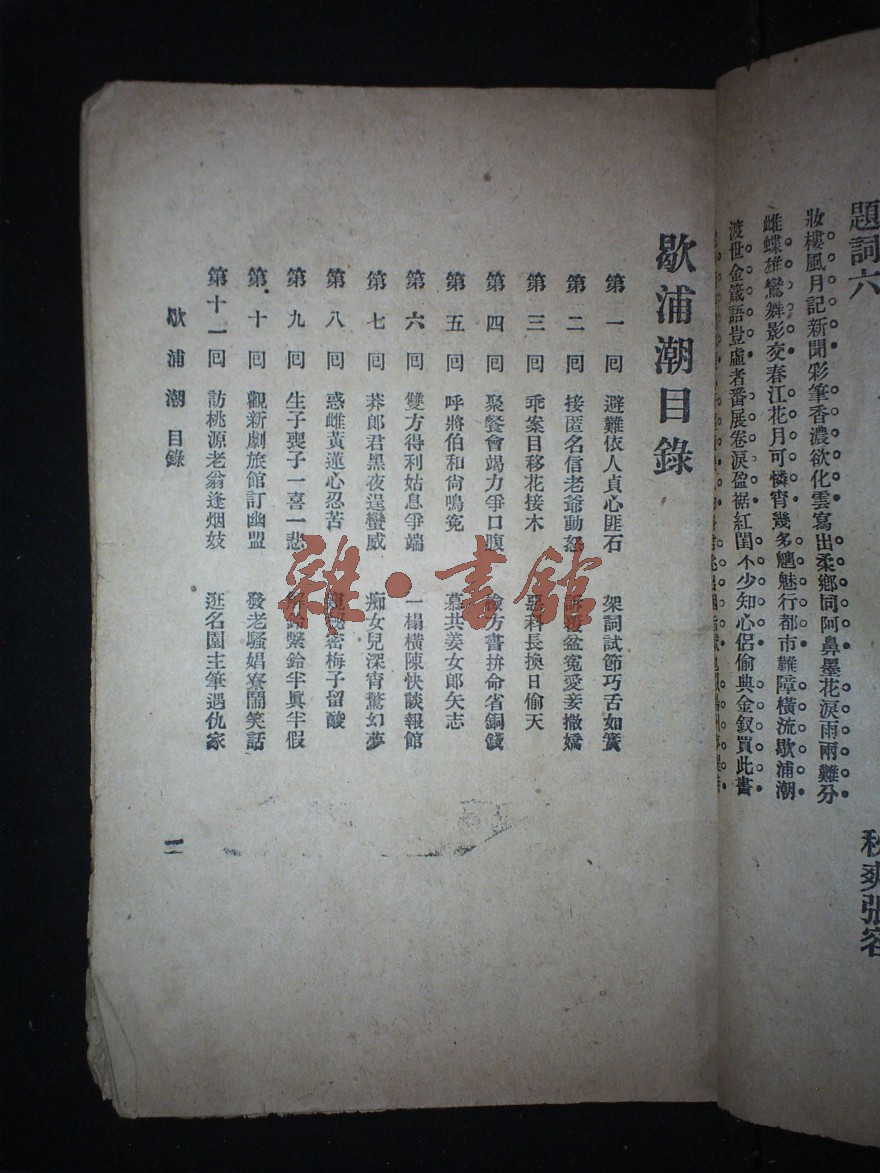 題詞六
妝樓風月記新聞彩筆香濃欲化雲寫出柔鄉同阿鼻墨花淚雨兩難分
雌蝶雄鸞舞影交春江花月可憐宵幾多魍魅行都市難障橫流歇浦潮
渡世金箴語豈虛者番展卷淚盈裾紅閨不少知心侶偷典金釵買此書
秋爽張容
歇浦潮目錄
第一回 避難依人貞心匪石 架詞試節巧舌如簧
第二回 接匿名信老爺動怒 訴覆盆冤愛妾撒嬌
第三回 乖案目移花接木 惡科長換日偷天
第四回 聚餐會竭力爭口腹 檢方書拚命省銅錢
第五回 呼將伯和尙鳴冤 慕共姜女郎矢志
第六回 雙方得利姑息爭端 一榻橫陳快談報館
第七回 莽郎君黑夜逞蠻威 痴女兒深宵驚幻夢
第八回 惑雌黃蓮心忍苦 窺秘密梅子留酸
第九回 生子喪子一喜一悲 解鈴繫鈴半眞半假
第十回 觀新劇旅館訂幽盟 發老騷娼寮鬧笑話
第十一回 訪桃源老翁逢烟妓 逛名園主筆遇仇家
歇浦潮 目錄
一
雜·書館